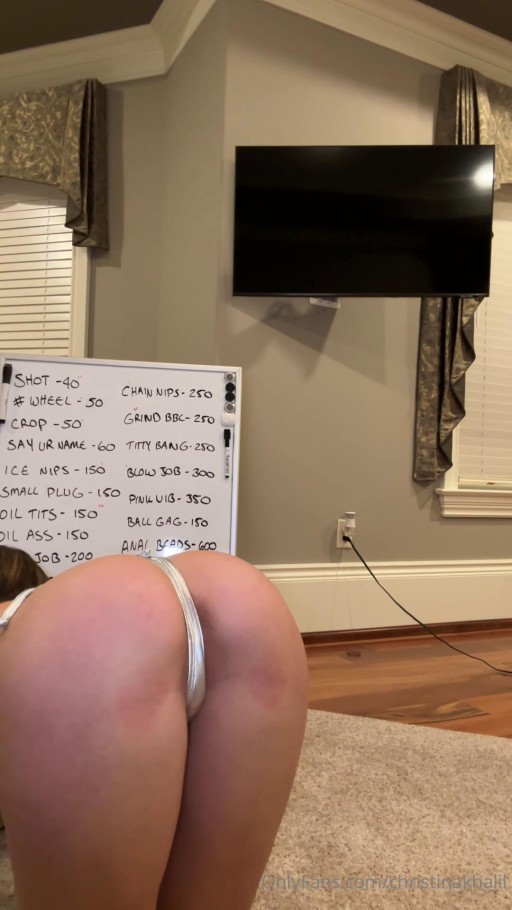 SHOT - 40
# WHEEL - 50
CROP - 50
SAY UR NAME - 60
ICE NIPS - 150
SMALL PLUG - 150
OIL TITS - 150
OIL ASS - 150
JOB - 200
CHAIN NIPS - 250
GRIND BBC - 250
TITTY BANG - 250
BLOW JOB - 300
PINK VIB - 350
BALL GAG - 150
ANAL BEADS - 600
OnlyFans.com/christinakhalil